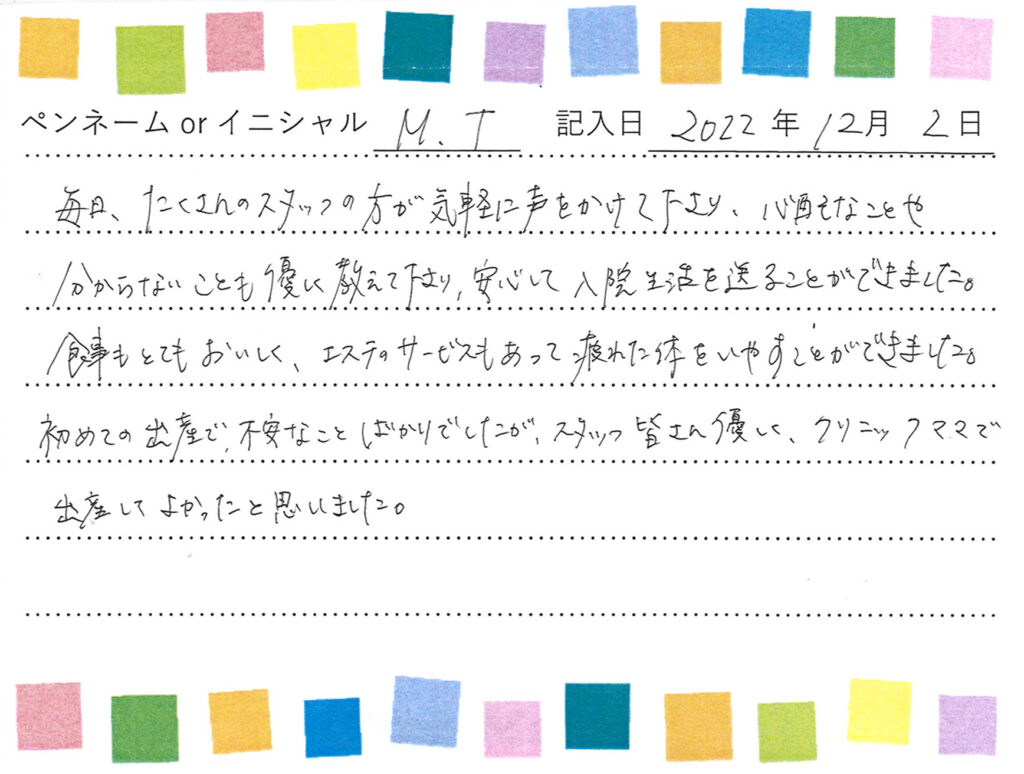 ペンネーム or イニシャル M.T 記入日 2022年12月2日
毎日、たくさんのスタッフの方が気軽に声をかけて下さり、心配なことや
分からないことも優しく教えて下さり、安心して入院生活を送ることができました。
食事もとてもおいしく、エステのサービスもあって疲れた体をいやすことができました。
初めての出産で、不安なことばかりでしたが、スタッフ皆さん優しく、クリニックママで
出産してよかったと思いました。